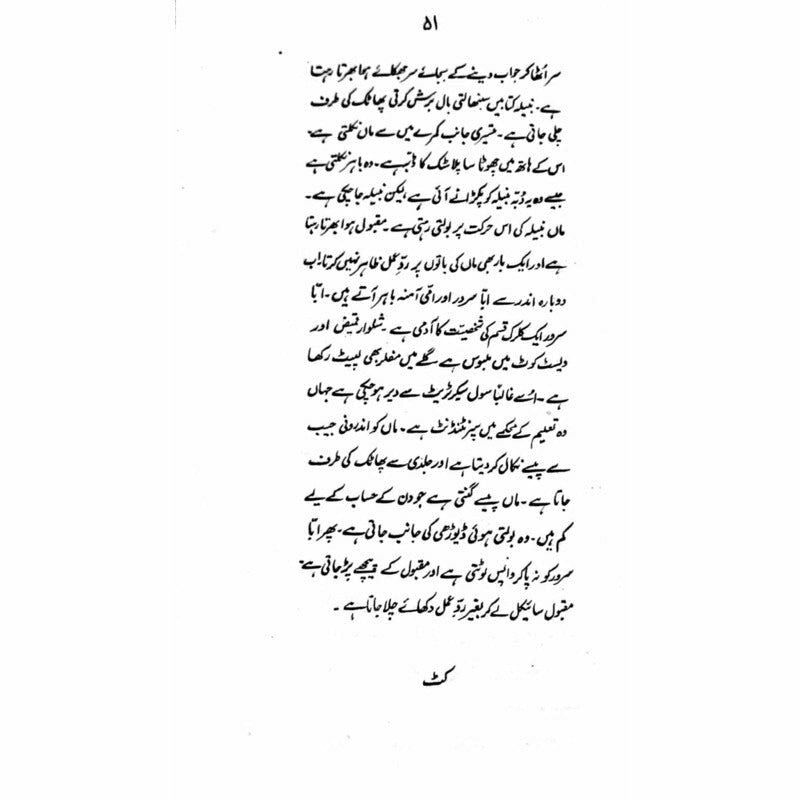 ۵۱
سر اُٹھا کر جواب دینے کے بجائے سر جھکائے ہوا بھرتا رہتا
ہے۔ نبیلہ کتابیں سنبھالتی بال برش کرتی پھاٹک کی طرف
چلی جاتی ہے۔ تیسری جانب کمرے میں سے ماں نکلتی ہے۔
اس کے ہاتھ میں چھوٹا سا پلاسٹک کا ڈبہ ہے۔ وہ باہر نکلتی ہے
جیسے وہ یہ ڈبہ نبیلہ کو پکڑانے آئی ہے لیکن نبیلہ جا چکی ہے۔
ماں نبیلہ کی اس حرکت پر بولتی رہتی ہے۔ مقبول ہوا بھرتا رہتا
ہے اور ایک بار بھی ماں کی باتوں پر ردِّ عمل ظاہر نہیں کرتا۔ اب
دوبارہ اندر سے ابّا سرور اور امّی آمنہ باہر آتے ہیں۔ ابّا
سرور ایک کلرک قسم کی شخصیّت کا آدمی ہے۔ شلوار قمیض اور
ویسٹ کوٹ میں ملبوس ہے گلے میں مفلر بھی لپیٹ رکھا
ہے۔ اُسے غالباً سول سیکرٹریٹ سے دیر ہو چکی ہے جہاں
وہ تعلیم کے محکمے میں سپرنٹنڈنٹ ہے۔ ماں کو اندرونی جیب
سے پیسے نکال کر دیتا ہے اور جلدی سے پھاٹک کی طرف
جاتا ہے۔ ماں پیسے گنتی ہے جو دن کے حساب کے لیے
کم ہیں۔ وہ بولتی ہوئی ڈیوڑھی کی جانب جاتی ہے۔ پھر ابّا
سرور کو نہ پا کر واپس لوٹتی ہے اور مقبول کے پیچھے پڑ جاتی ہے۔
مقبول سائیکل لے کر بغیر ردِّ عمل دکھائے چلا جاتا ہے۔
کٹ